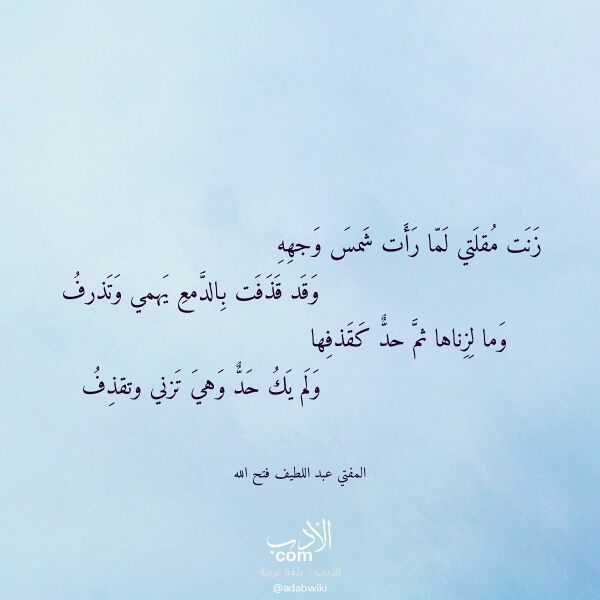 زَنَت مُقلَتي لَمّا رَأَت شَمسَ وَجهِهِ
وَقَد قَذَفَت بِالدَّمعِ يَهمي وَتَذرفُ
وَما لِزِناها ثمَّ حدٌّ كَقَذفِها
وَلَم يَكُ حَدٌّ وَهيَ تَزني وتقذِفُ
المفتي عبد اللطيف فتح الله
الأدب
com
الأدب .. بلغة عربية
@adabwiki